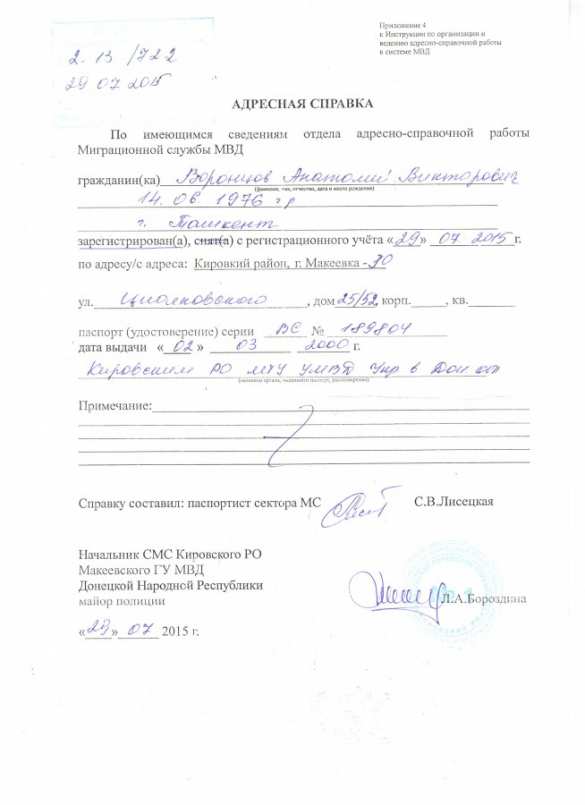 Приложение 4
к Инструкции по организации и
ведению адресно-справочной работы
в системе МВД
2.13 /722
29 07 2015
АДРЕСНАЯ СПРАВКА
По имеющимся сведениям отдела адресно-справочной работы
Миграционной службы МВД
гражданин(ка) Воронцов Анатолий Викторович
(фамилия, имя, отчество, дата и место рождения)
14. 06. 1976 г р
г. Ташкент
зарегистрирован(а), снят(а) с регистрационного учёта «29» 07 2015 г.
по адресу/с адреса: Кировкий район, г. Макеевка - 30
ул. Циолковского, дом 25/52, корп. , кв.
паспорт (удостоверение) серии ВЕ № 189804
дата выдачи «02» 03 2000 г.
Кировским РО МГУ УМВД Укр в Дон
Примечание:
Справку составил: паспортист сектора МС С.В.Лисецкая
Начальник СМС Кировского РО
Макеевского ГУ МВД
Донецкой Народной Республики
майор полиции
Л.А.Бороздина
«29» 07 2015 г.